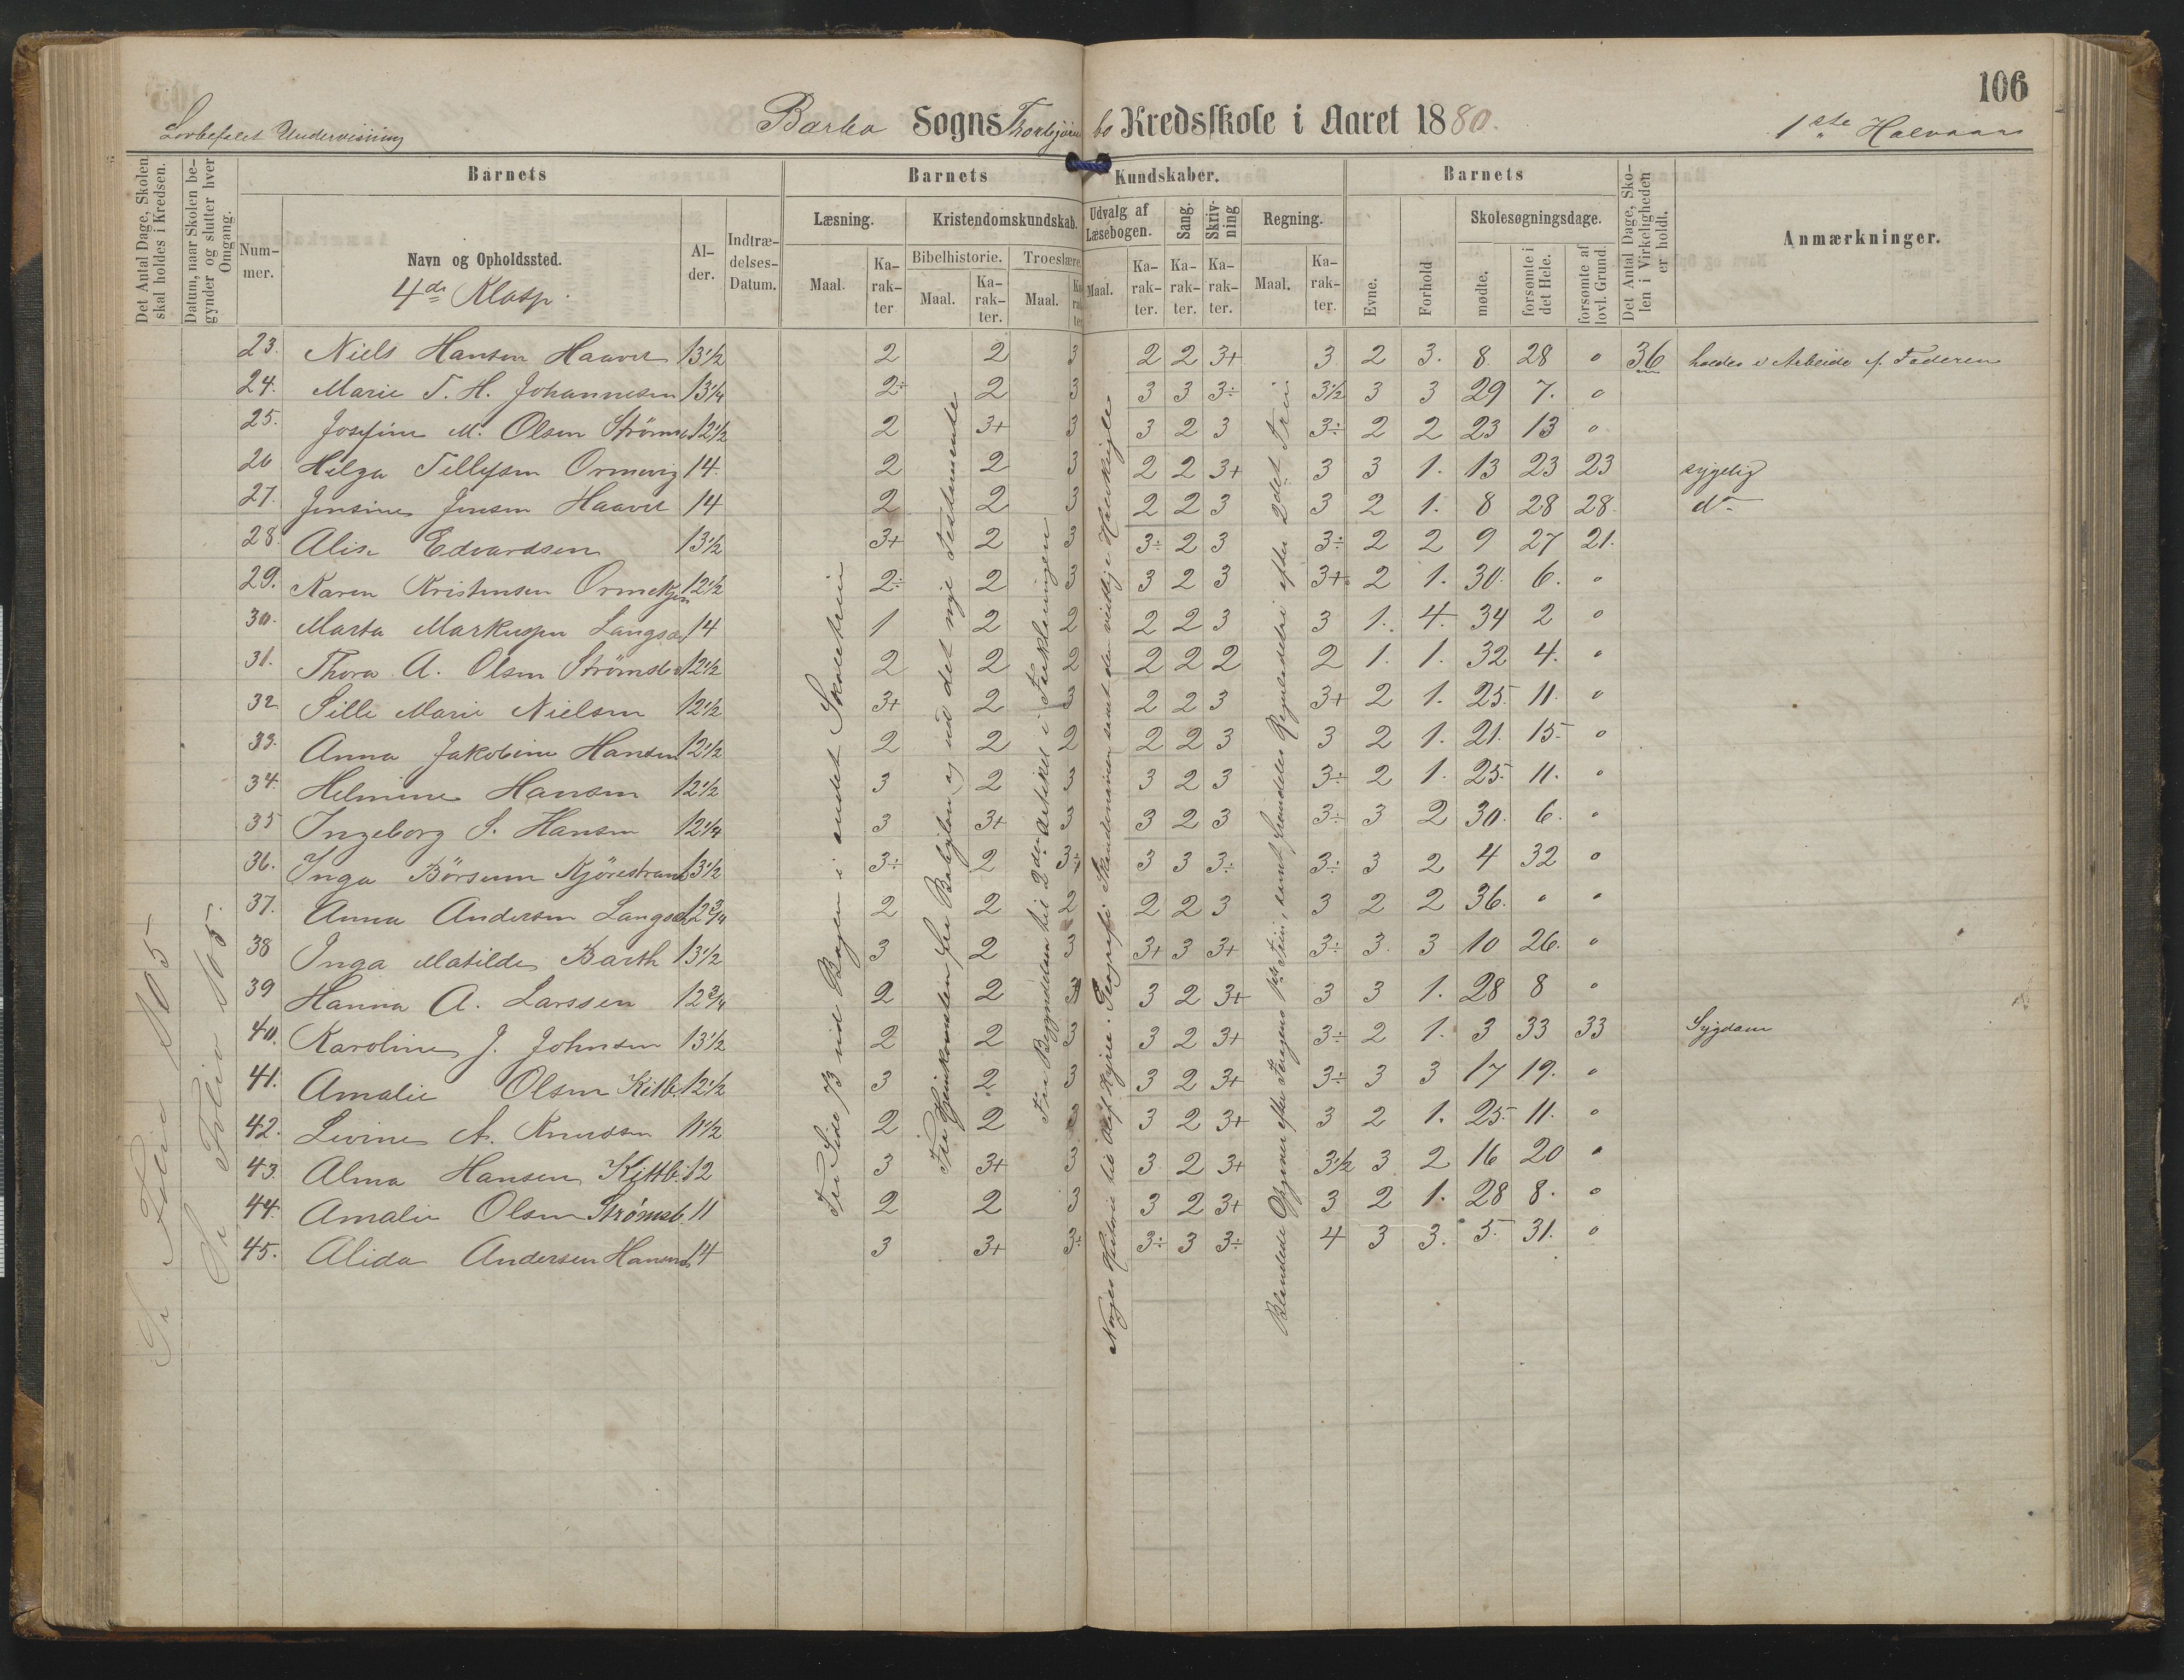 106
Lovbefalet Undervisning
Barbo Sogns Thorbjørnsbo Kredsskole i Aaret 1880.
1ste Halvaar
Det Antal Dage, Skolen skal holdes i Kredsen.
Datum, naar Skolen begynder og slutter hver Omgang.
Barnets
Nummer.
Navn og Opholdssted.
4de Klasse.
Alder.
Indtrædelses-Datum.
Barnets Kundskaber.
Læsning.
Maal.
Karakter
Kristendomskundskab.
Bibelhistorie.
Maal.
Karakter.
Troeslære.
Maal.
Karakter.
Udvalg af Læsebogen.
Maal.
Karakter.
Sang.
Karakter.
Skrivning
Karakter.
Regning.
Maal.
Karakter.
Barnets
Evne.
Forhold
Skolesøgningsdage.
mødte.
forsømte i det Hele.
forsømte af lovl. Grund.
Det Antal Dage, Skolen i Virkeligheden er holdt.
Anmærkninger.
23. Niels Hansen Haavet 13 1/2 2 2 3 2 2 3+ 3 2 3. 8 28 0 36 holdes i Arbeide af Faderen
24. Marie T. H. Johannesen 13 1/4 2÷ 2 3 3 3 3÷ 3 1/2 3 3 29 7. 0
25. Josefine M. Olsen Strømsb 12 1/2 2 3+ 3 3 2 3 3÷ 2 2 23 13 0
26 Helga Tellefsen Ormevig 14. 2 2 3 2 2 3+ 3 3 1. 13 23 23 sygelig
27. Jensine Jensen Haavet 14 2 2 3 2 2 3 3 2 1. 8 28 28. do
28. Alise Edvardsen 13 1/2 3+ 2 3 3÷ 2 3 3÷ 2 2 9 27 21.
29. Karen Kristensen 12 1/2 2÷ 2 3 3 2 3 3+ 2 1. 30. 6. 0
30. Marta Markussen Langsæ 14 1 2 2 2 2 3 3 1. 4. 34 2 0
31. Thora A. Olsen Strømsbo 12 1/2 2 2 2 2 2 2 2 1. 1. 32 4. 0
32 Sille Marie Nielsen 12 1/2 3+ 2 3 2 2 3 3+ 2 1. 25. 11. 0
33. Anna Jakobine Hansen 12 1/2 2 2 2 2 2 3 3 2 1. 21. 15. 0
34. Helmine Hansen 12 1/2 3 2 3 3 2 3 3÷ 2 1. 25. 11. 0
35 Ingeborg S. Hansen 12 1/4 3 3+ 3 3 2 3 3÷ 3 2 30. 6. 0
36. Inga Börsum Kjörestrand 13 1/2 3÷ 2 3÷ 3 3 3÷ 3÷ 3 2 4 32 0
37. Anna Andersen Langsæ 12 3/4 2 2 2 2 2 3 3 2 2 36. 0 0
38 Inga Matilde Barth 13 1/2 3 2 3 3+ 3 3+ 3÷ 3. 3 10 26. 0
39 Hanna A. Larssen 12 3/4 2 2 3 3 2 3+ 3 3 1. 28 8 0
40. Karoline J. Johnsen 13 1/2 2 2 3 3 2 3+ 3÷ 2 1. 3 33 33 Sygdom
41. Amalie Olsen Kitb. 12 1/2 3 2 3 3 2 3+ 3÷ 3 3 17 19. 0
42. Levine A. Knudsen 11 1/2 2 2 3 3 2 3+ 3 2 1. 25. 11. 0
43. Alma Hansen Kittb. 12 3 3+ 3 3 2 3+ 3 1/2 3 2 16 20 0
44. Amalie Olsen Strømsb. 11 2 2 3 3 2 3+ 3 2 1. 28 8. 0
45. Alida Andersen 14 3 3+ 3÷ 3÷ 3 3÷ 4 3 3. 5. 31. 0
Se Folio 105
Se Folio 105.
Fra Side 73 ud Bogen i andet Skoletrin
Fra Hjemkomsten fra Babylon og ud det nye Testamente
Fra Begyndelsen til 2den Artikel i Forklaringen
Norges Historie til Olaf Kyrre. Geografi: Skandinavien samt den vestlige Halvkugle
Blandede Opgaver efter Foegens 1ste Trin, samt Grundeles Reguladetri efter 2det Trin